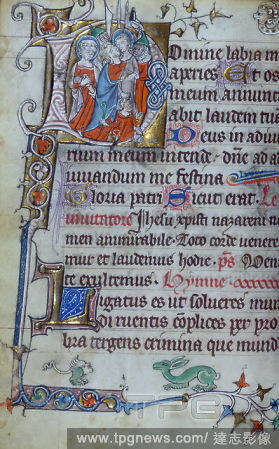 Domine labia m
aperies Et os
meum annunt
abit laudem tuā
Deus in adiu
rium meum intende. dn̄e ad a
iuuandum me festina
Gloria patri Sicut erat.
Ihesu xp̄isti nazareni n
men ammirabile. Toto corde venere
mur et laudemus hodie. ps̄ Veni
te exultemus. Hymne
Ligatus es ut solueres mu
di ruentis cōplices per pro
bra tergens crimina que mund
TPG
www.tpgnews.com/ 達志影像